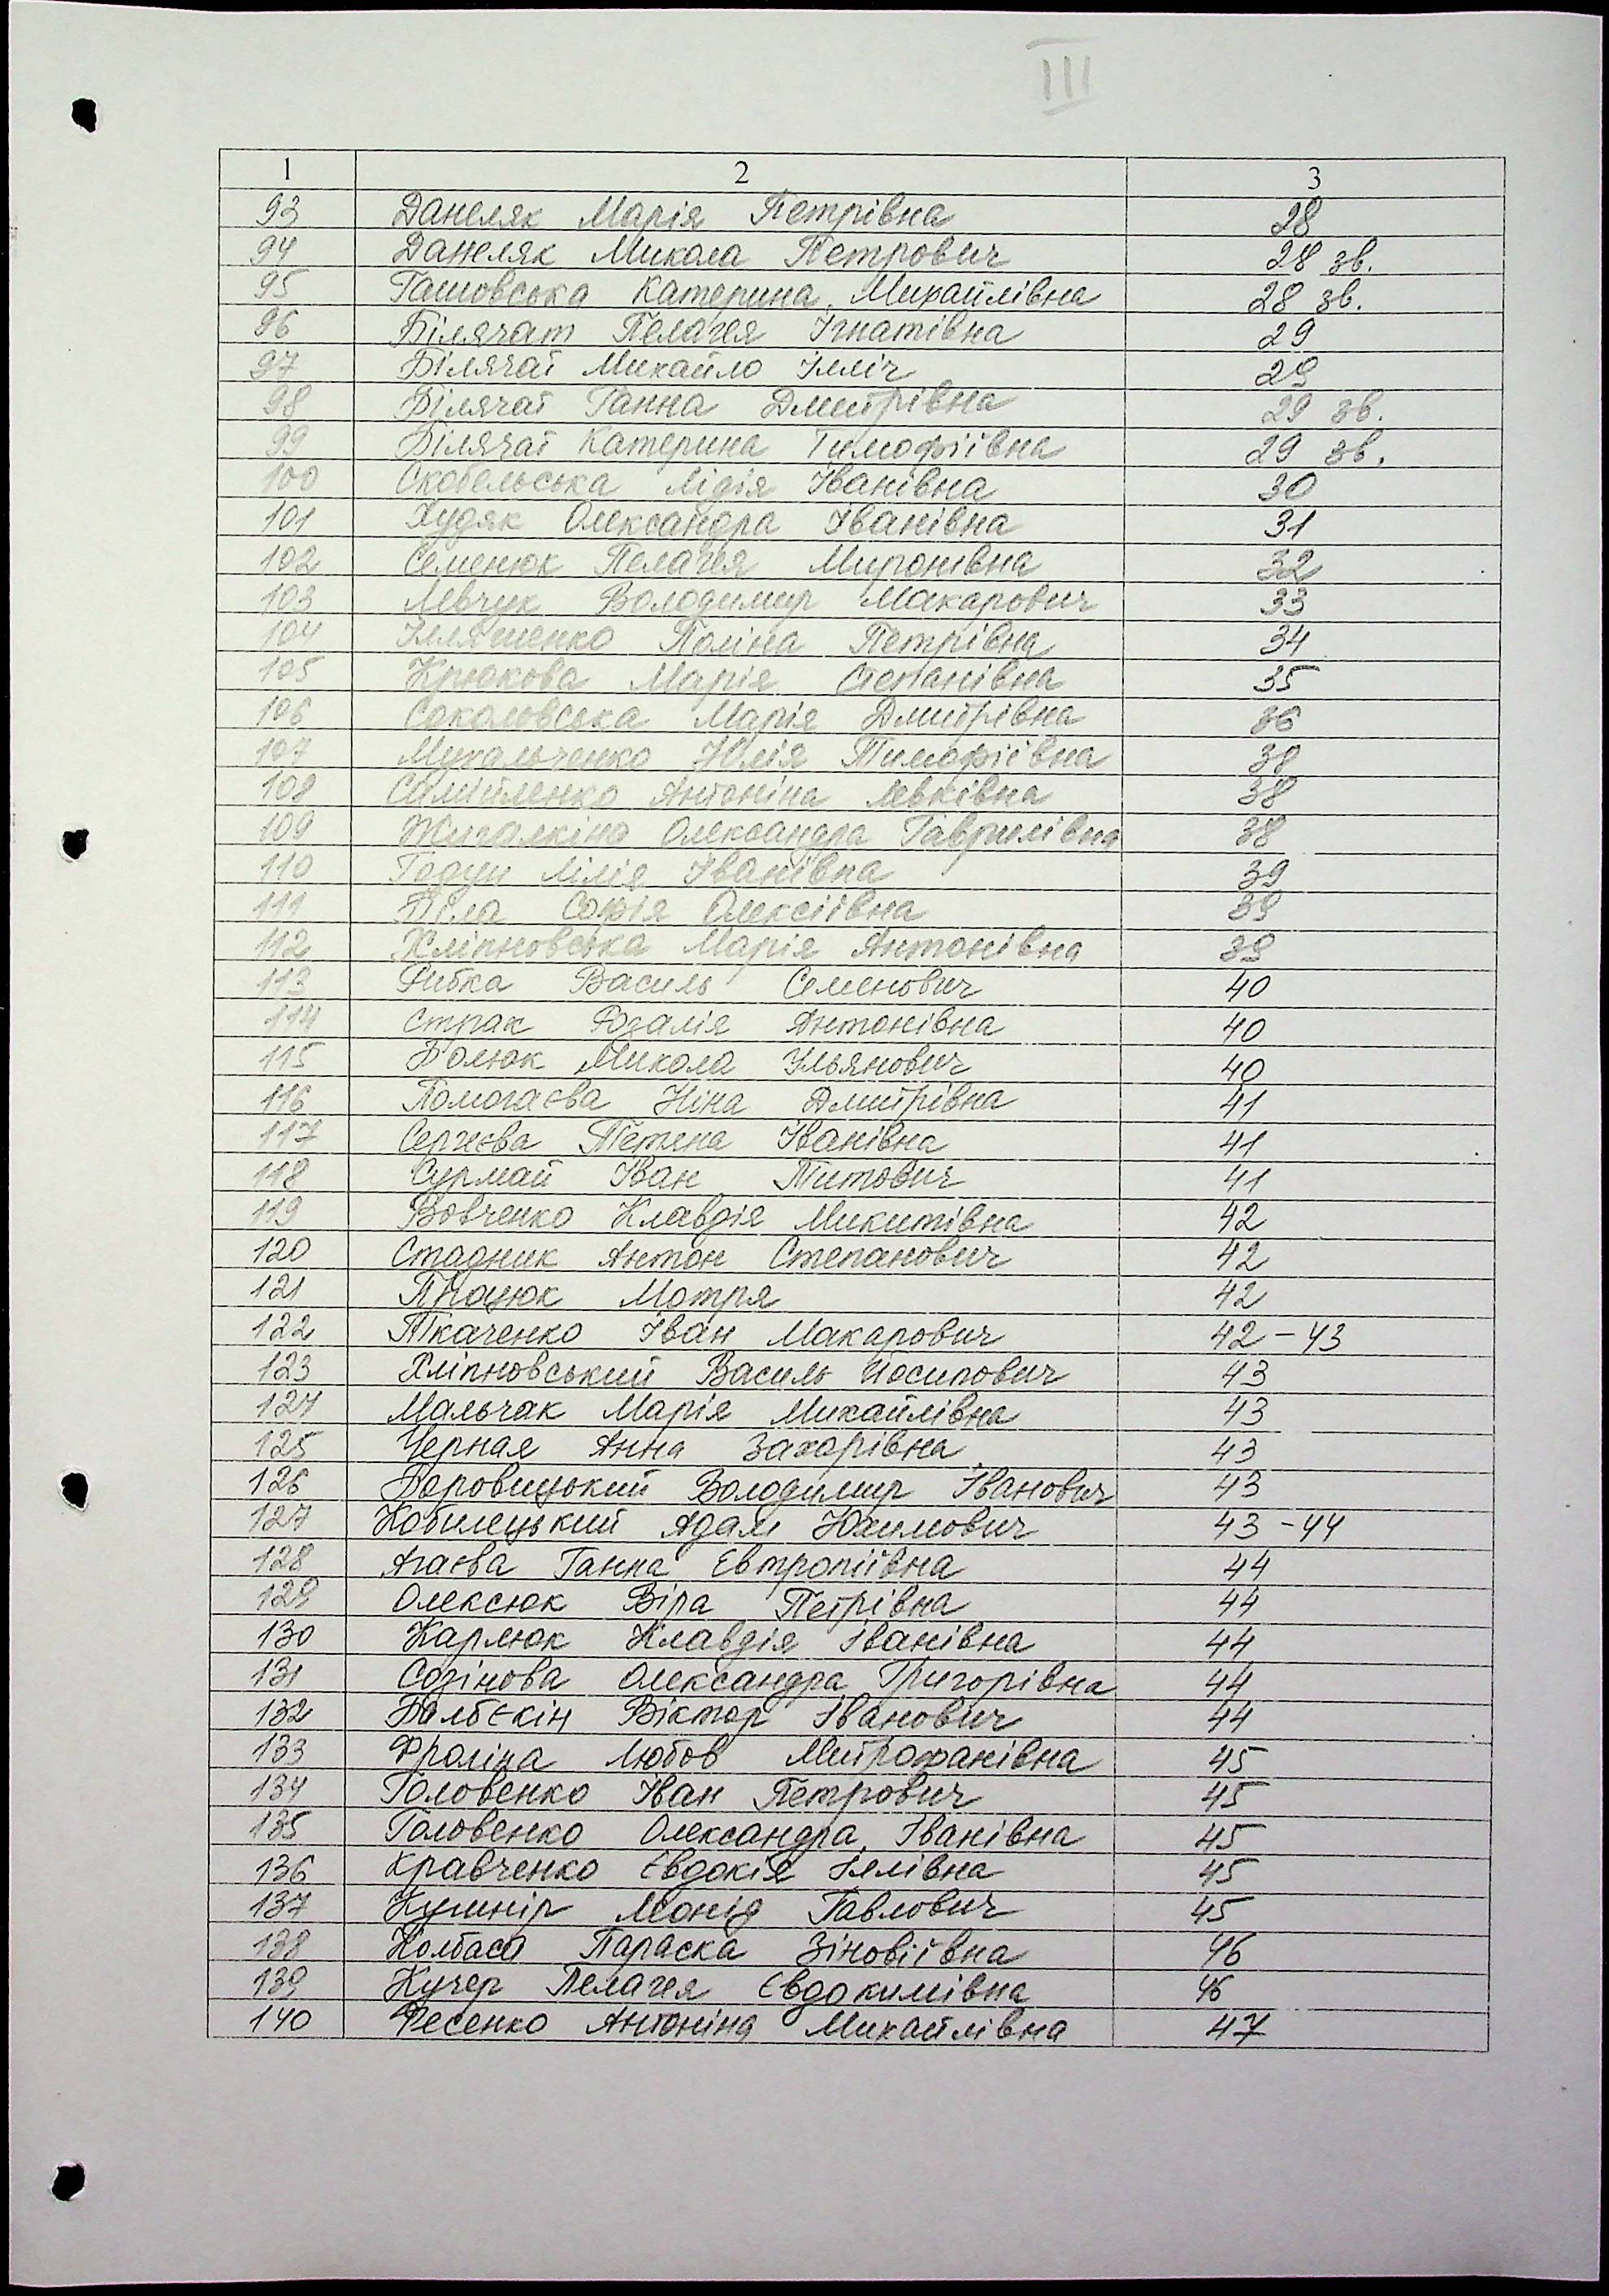 III
1 2 3
93 Данеляк Марія Петрівна 28
94 Данеляк Микола Петрович 28 зв.
95 Гашовська Катерина Михайлівна 28 зв.
96 Білячат Пелагея Ігнатівна 29
97 Білячат Михайло Ілліч 29
98 Білячат Ганна Дмитрівна 29 зв.
99 Білячат Катерина Тимофіївна 29 зв.
100 Скобельська Лідія Іванівна 30
101 Худяк Олександра Іванівна 31
102 Семенюк Пелагея Миронівна 32
103 Левчук Володимир Макарович 33
104 Ілляшенко Поліна Петрівна 34
105 Крюкова Марія Степанівна 35
106 Соколовська Марія Дмитрівна 36
107 Михальченко Юлія Тимофіївна 38
108 Самійленко Антоніна Левківна 38
109 Жигалкіна Олександра Гаврилівна 38
110 Годун Лілія Іванівна 39
111 Біла Софія Олексіївна 39
112 Хліпновська Марія Антонівна 39
113 Рибка Василь Семенович 40
114 Страк Розалія Антонівна 40
115 Болюк Микола Ульянович 40
116 Помогаєва Ніна Дмитрівна 41
117 Сергєєва Тетяна Іванівна 41
118 Сурмай Іван Титович 41
119 Вовченко Клавдія Микитівна 42
120 Стадник Антон Степанович 42
121 Процюк Мотря 42
122 Ткаченко Іван Макарович 42-43
123 Хліпновський Василь Йосипович 43
124 Мальчак Марія Михайлівна 43
125 Черная Анна Захарівна 43
126 Боровицький Володимир Іванович 43
127 Кобилецький Адам Юхимович 43-44
128 Агаєва Ганна Евтропіївна 44
129 Олексюк Віра Петрівна 44
130 Карлюк Клавдія Іванівна 44
131 Созінова Олександра Григорівна 44
132 Балбєкін Віктор Іванович 44
133 Фроліна Любов Митрофанівна 45
134 Головенко Іван Петрович 45
135 Головенко Олександра Іванівна 45
136 Кравченко Євдокія Іллівна 45
137 Кушнір Леонід Павлович 45
138 Колбаса Параска Зіновіївна 46
139 Кучер Пелагея Євдокимівна 46
140 Фесенко Антоніна Михайлівна 47